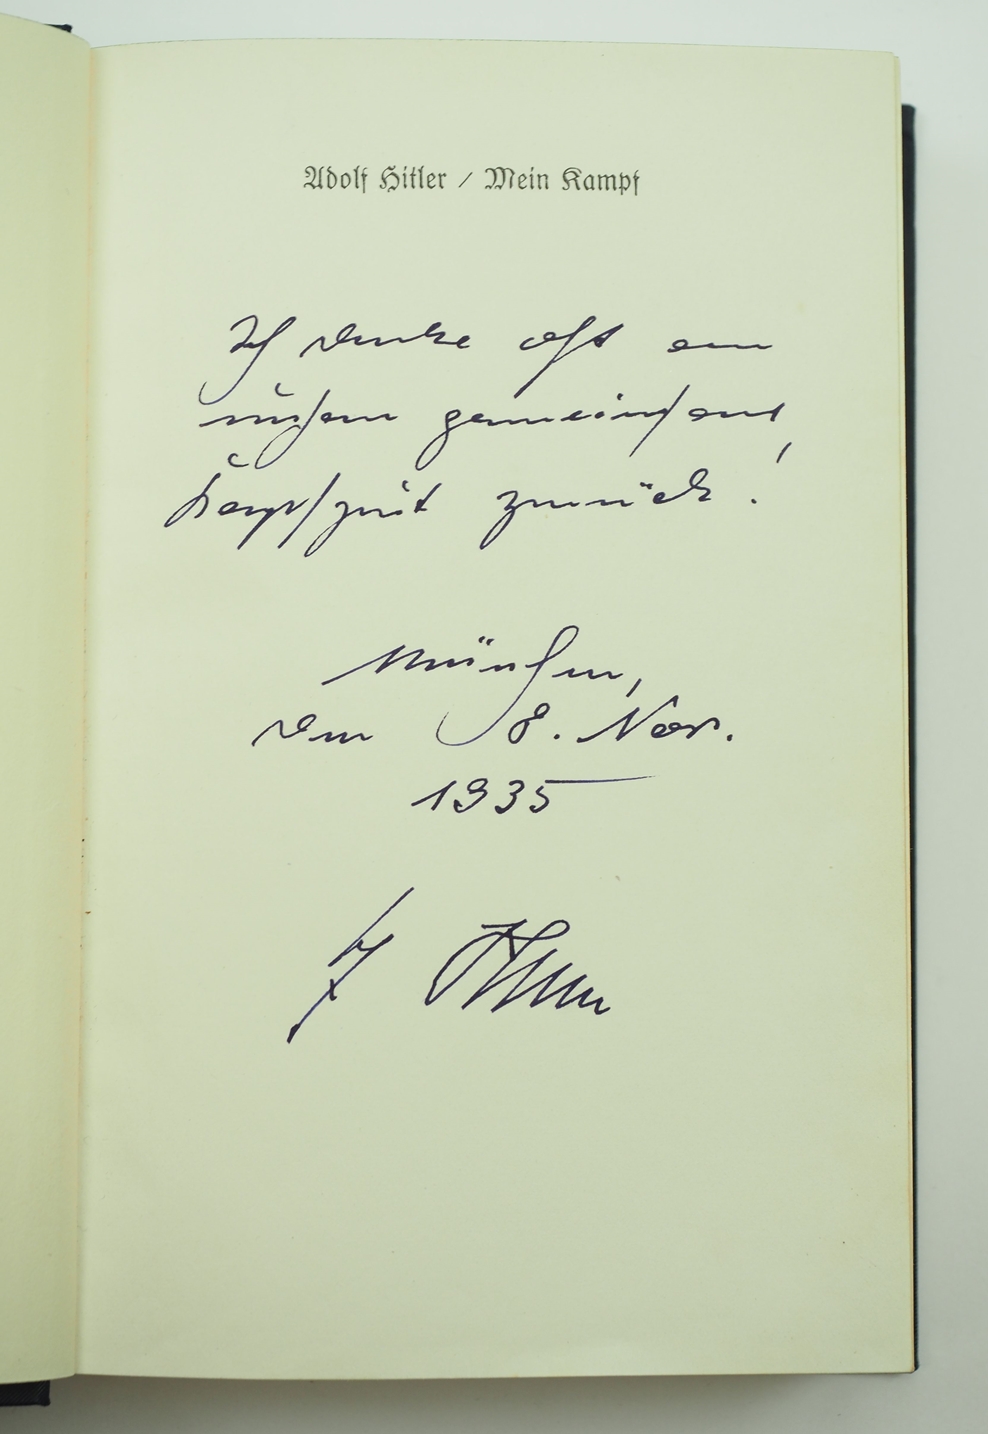 Adolf Hitler / Mein Kampf
Ich denke oft an
unsere gemeinsame
Kampfzeit zurück!
München,
den 8. Nov.
1935